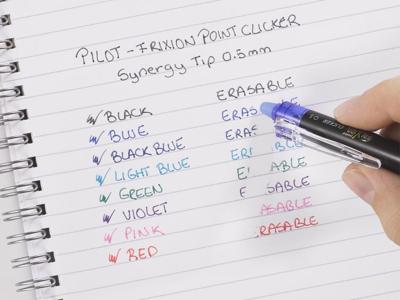 PILOT - FRIXION POINT CLICKER
Synergy Tip 0.5mm
ERASABLE
BLACK
BLUE ERAS E
BLACK BLUE ERAS
LIGHT BLUE ER BLE
GREEN E ABLE
VIOLET E SABLE
PINK ASABLE
RED RASABLE